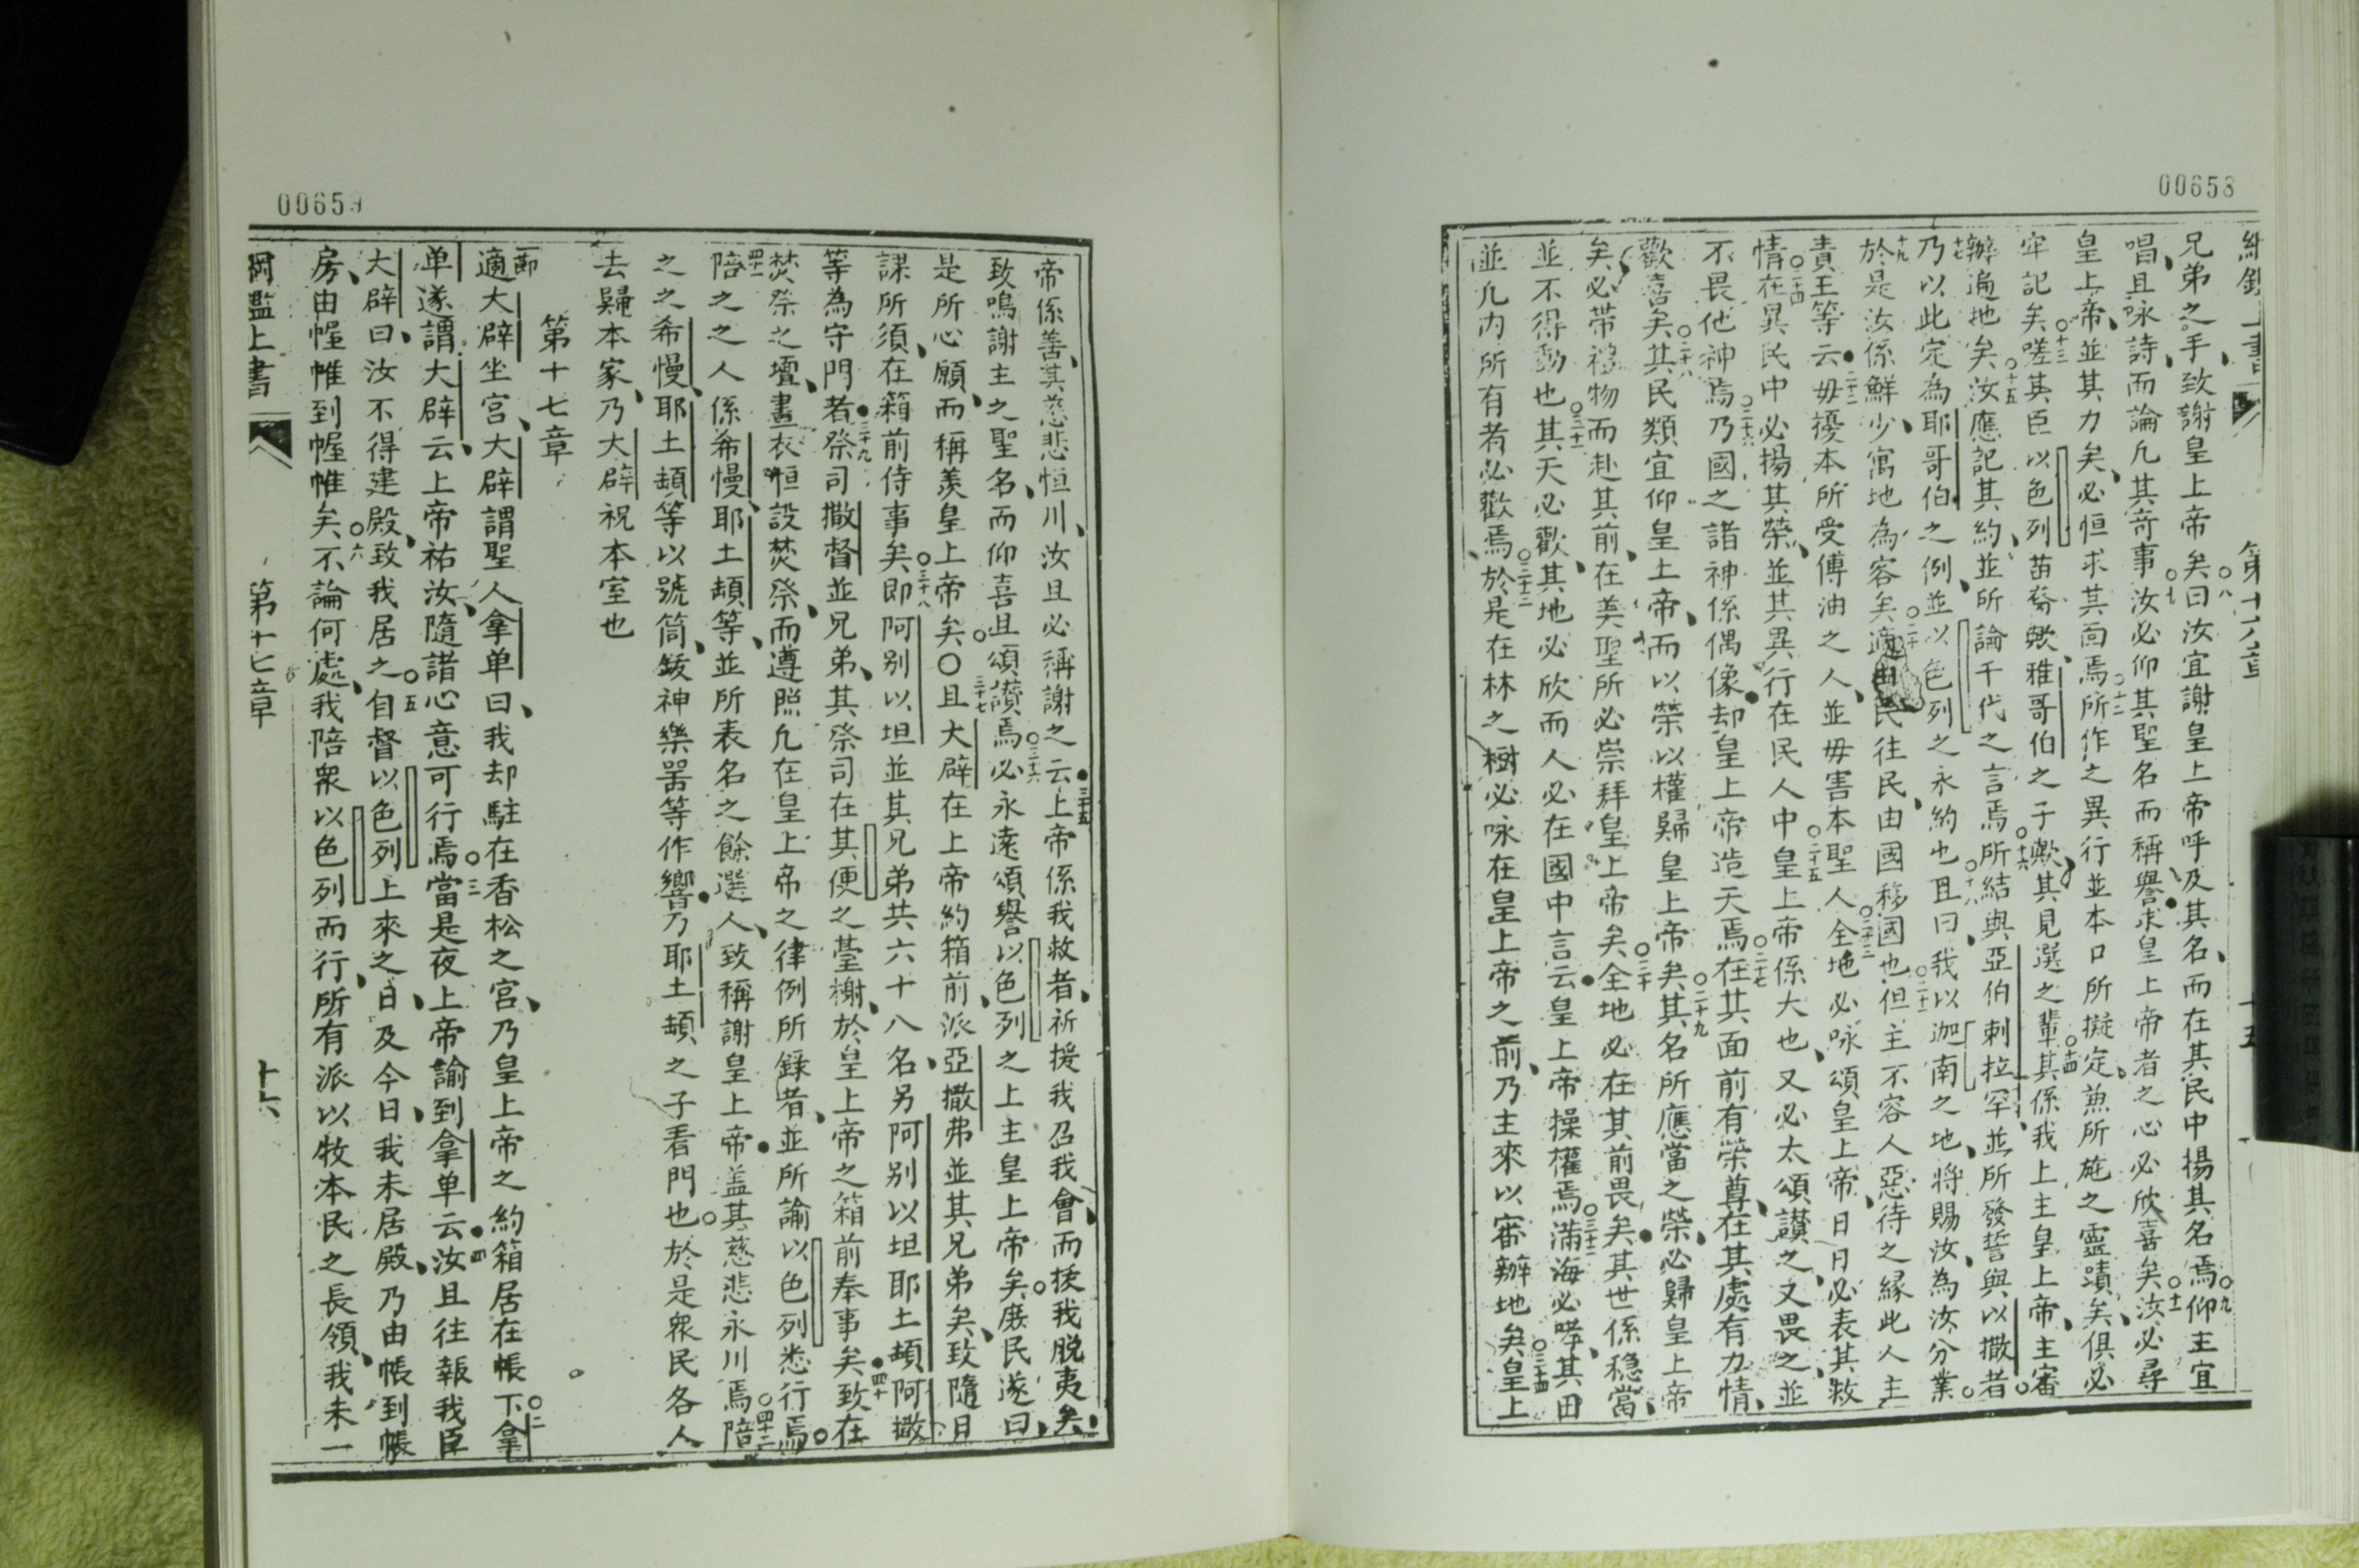 00658
第十六章
兄弟之手、致謝皇上帝矣○八曰汝宜謝皇上帝呼及其名、而在其民中揚其名焉○九仰主宜
唱、且咏詩、而論凢其竒事汝必仰其聖名而稱譽求皇上帝者之心必欣喜矣○十一汝必尋
皇上帝、並其力矣、必恒求其靣焉○十二所作之異行並本口所擬定兼所施之靈蹟矣、俱必
牢記矣○十三嗟其臣以色列苗裔歟、雅哥伯之子歟、其見選之輩○十四其係我上主皇上帝、主審
辦遍地矣○十五汝應記其約、並所論千代之言焉○十六所結與亞伯剌拉罕並所發誓與以撒者
十七乃以此定為耶哥伯之例、並以色列之永約也○十八且曰、我以迦南之地、將賜汝、為汝分業
十九於是汝係鮮少、寓地為客矣○二十適由民往民、由國移國也○二十一但主不容人惡待之縁此人主
責王等云●二十二毋擾本所受傅油之人、並毋害本聖人○二十三全地必咏頌皇上帝、日日必表其救
情○二十四在異民中必揚其榮、並其異行在民人中○二十五皇上帝係大也、又必太頌讃之、又畏之、並
不畏他神焉○二十六乃國之諸神係偶像●却皇上帝造天焉○二十七在其面前有榮尊、在其處有力情、
歡喜矣○二十八其民類宜仰皇上帝、而以榮以權歸皇上帝矣○二十九其名所應當之榮、必歸皇上帝
矣、必帶禮物而赴其前、在美聖所必崇拜皇上帝矣○三十全地必在其前畏矣●其世係穏當、
並不得動也○三十一其天必歡、其地必欣而人必在國中言云●皇上帝操權焉○三十二滿海必哮、其田
並凢內所有者必歡焉○三十三於是在林之樹必咏在皇上帝之前、乃主來以審辦地矣○三十四皇上
00659
帝係善、其慈悲恒川、汝且必稱謝之云●三十五上帝係我救者、祈援我召我會而援我脫夷矣、
致鳴謝主之聖名、而仰喜且頌讃焉○三十六必永遠頌譽以色列之上主皇上帝矣○庶民遂曰、
是所心願、而稱羨皇上帝矣○三十七且大辟在上帝約箱前、派亞撒弗並其兄弟矣、致隨日
課所須、在箱前侍事矣○三十八即阿别以坦並其兄弟共六十八名另阿别以坦耶土頡阿撒
等為守門者●三十九祭司撒督並兄弟、其祭司在其便之臺榭、於皇上帝之箱前奉事矣●四十致在
焚祭之壇、晝夜恒設焚祭、而遵照凢在皇上帝之律例所録者、並所諭以色列悉行焉○
四一陪之之人係希慢、耶土頡等、並所表名之餘選人、致稱謝皇上帝●盖其慈悲永川焉○四十二陪
之之希慢、耶土頡等以號筒、鈸神樂噐等作響●乃耶土頡之子看門也○於是衆民各人
去歸本家、乃大辟祝本室也
第十七章
一節適大辟坐宮、大辟謂聖人拿单曰、我却駐在香松之宮、乃皇上帝之約箱居在帳下○二拿
单遂謂大辟云、上帝祐汝、隨諸心意可行焉○三當是夜上帝諭到拿单云●四汝且往報我臣
大辟曰、汝不得建殿、致我居之○五自督以色列上來之日、及今日、我未居殿、乃由帳到帳、
房、由幄帷到幄帷矣○六不論何處、我陪衆以色列而行、所有派以牧本民之長領、我未一
綱鑑上書
第十七章
十六